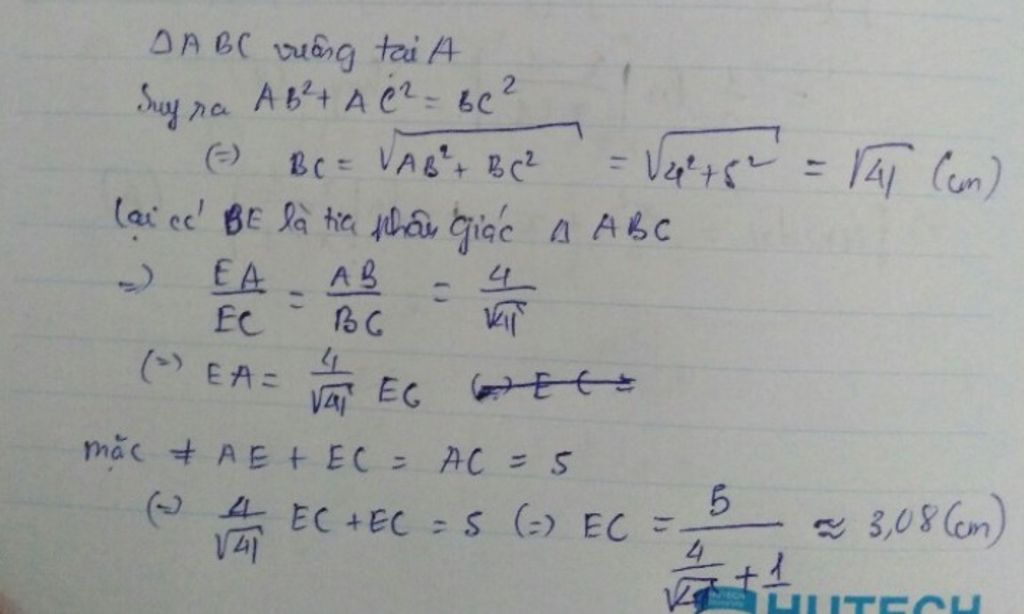 Δ ABC vuông tại A
Suy ra AB² + AC² = BC²
(=) BC = √(AB² + BC²) = √(4² + 5²) = √41 (cm)
Lại có BE là tia phân giác Δ ABC
=) EA/EC = AB/BC = 4/√41
(=) EA = 4/√41 EC (=) EC =
mặc ≠ AE + EC = AC = 5
(=) 4/√41 EC + EC = 5 (=) EC = 5/(4/√41 + 1) ≈ 3,08 (cm)
HUTECH